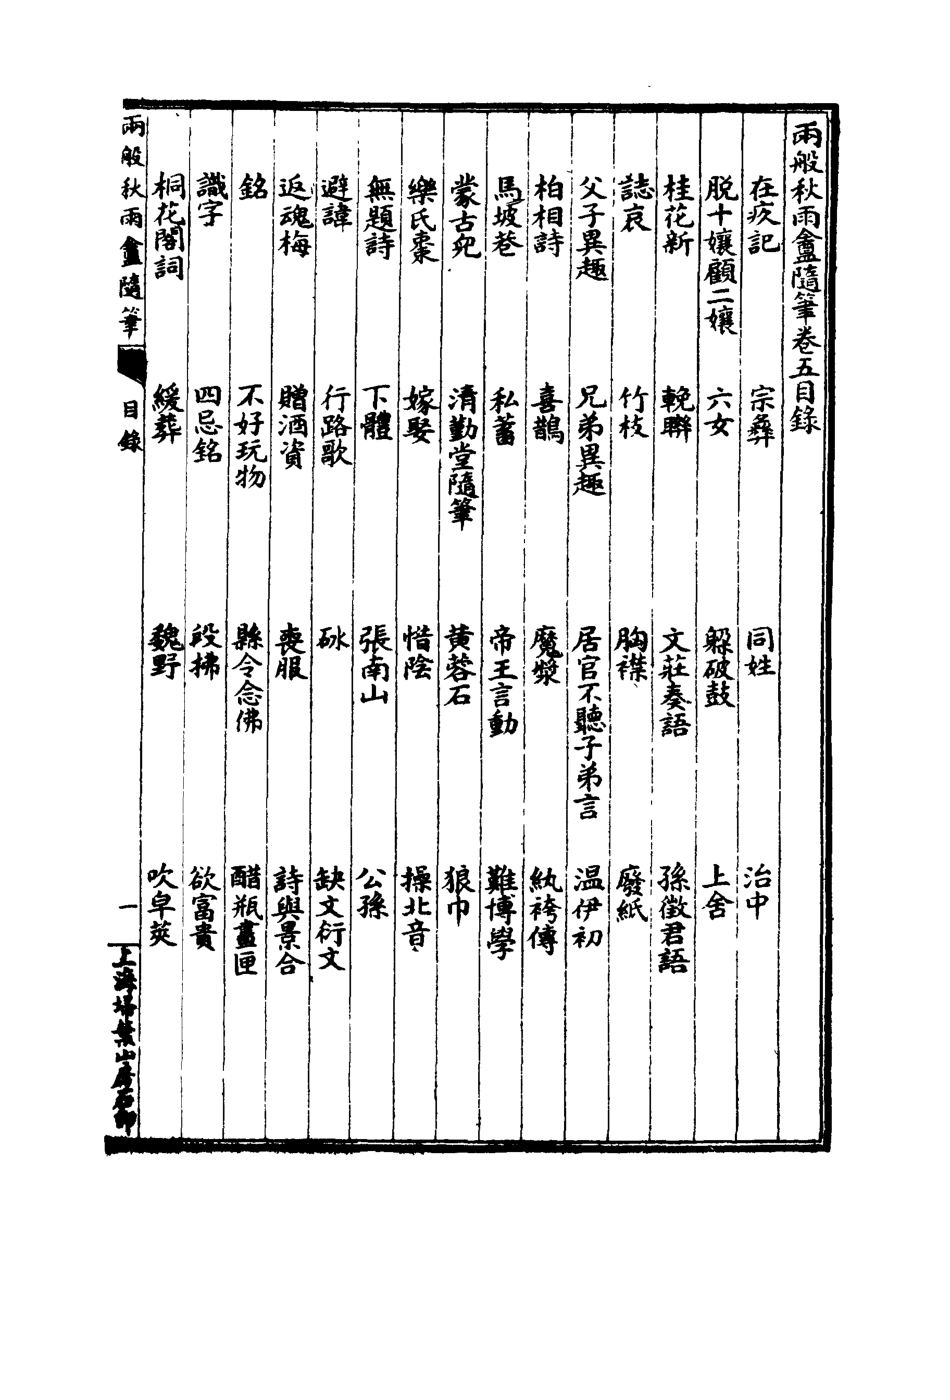 兩般秋雨盦隨筆卷五目錄
在疚記 宗彝 同姓 治中
脫十孃顧二孃 六女 躲破鼓 上舍
桂花新 輓聯 文莊奏語 孫徵君語
誌哀 竹枝 胸襟 廢紙
父子異趣 兄弟異趣 居官不聽子弟言 温伊初
柏相詩 喜鵲 魔漿 紈袴傳
馬坡巷 私蓄 帝王言動 難博學
蒙古兒 清勤堂隨筆 黃蓉石 狼巾
樂氏棗 嫁娶 惜陰 操北音
無題詩 下體 張南山 公孫
避諱 行路歌 砅 缺文衍文
返魂梅 贈酒資 喪服 詩與景合
銘 不好玩物 縣令念佛 醋瓶畫匣
識字 四忌銘 段拂 欲富貴
桐花閣詞 緩葬 魏野 吹皁莢
兩般秋雨盦隨筆 目錄 一 上海埽葉山房石印